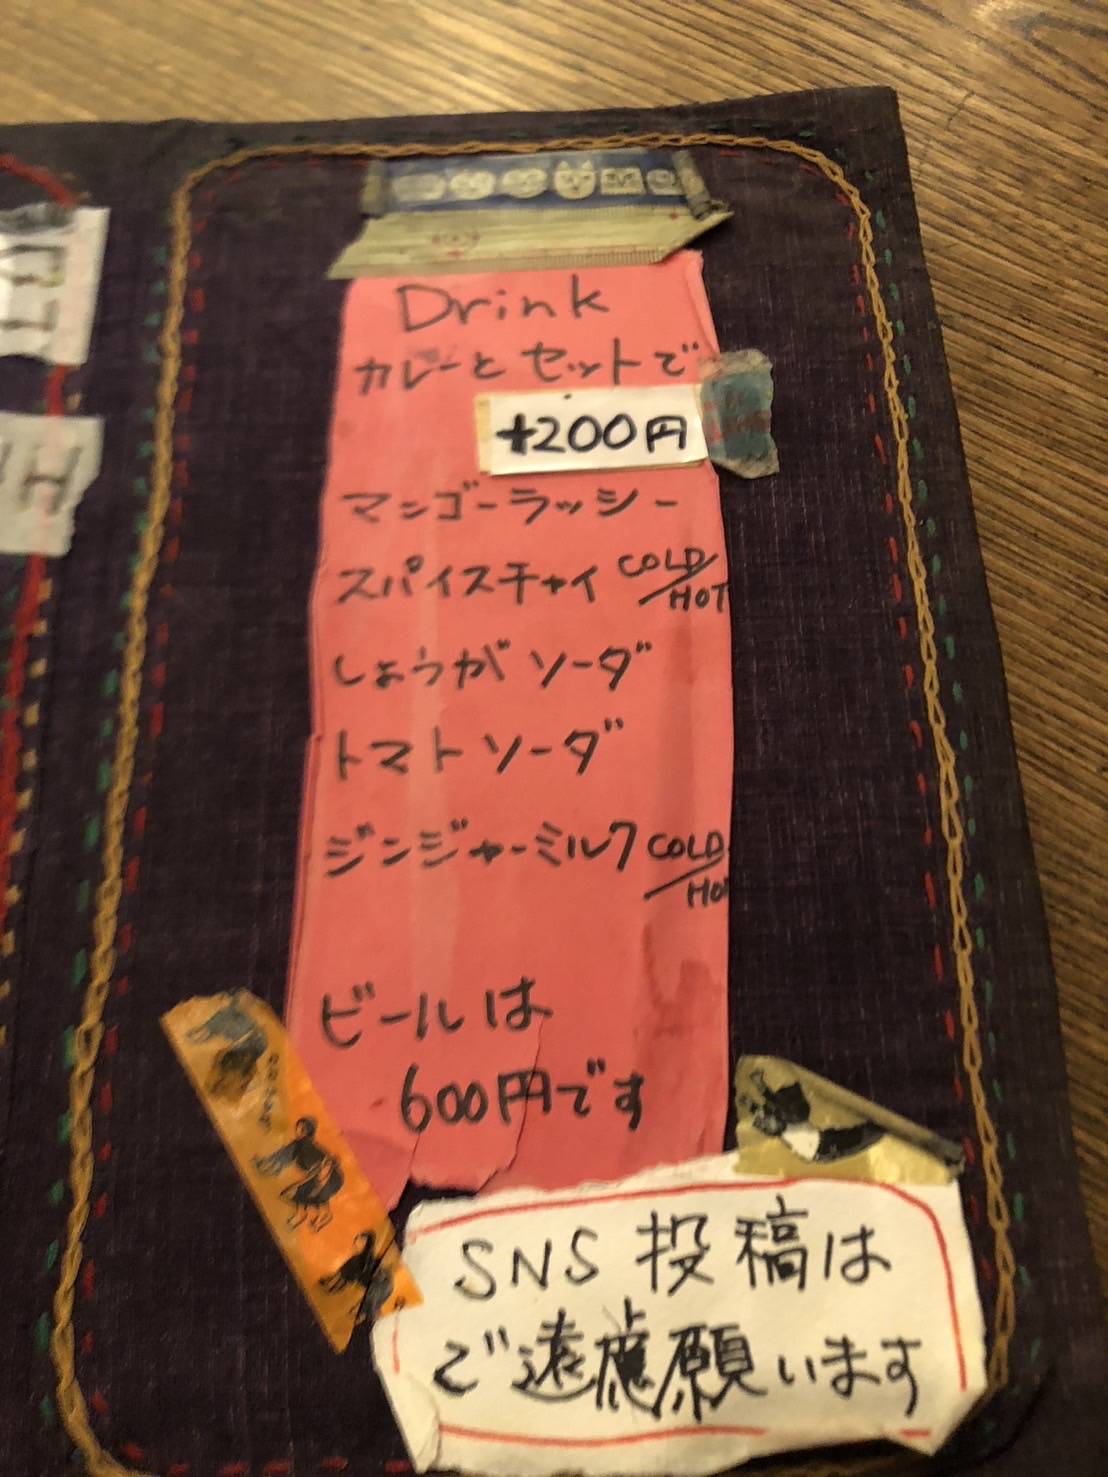 Drink
カレーと セットで
+200円
マンゴーラッシー
スパイスチャイ COLD/HOT
しょうがソーダ
トマトソーダ
ジンジャーミルク COLD/HO
ビールは
600円です
SNS 投稿は
ご遠慮願います